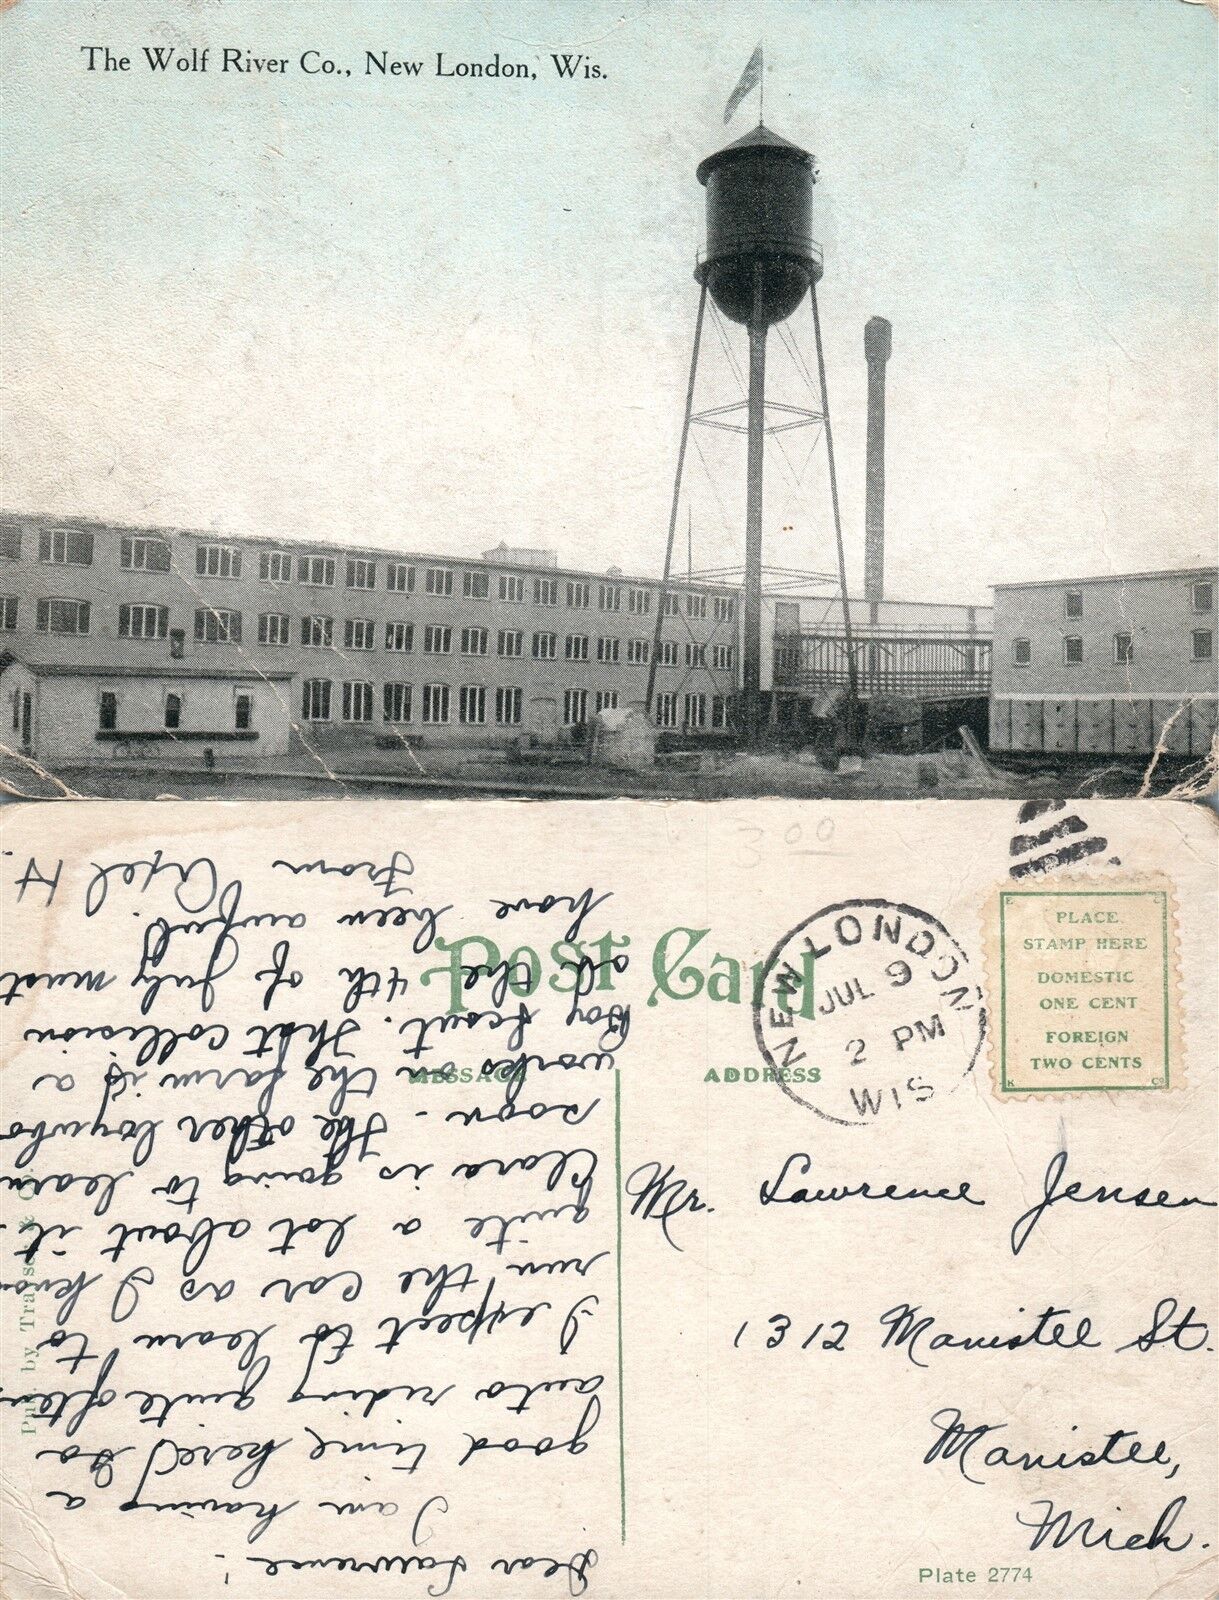 The Wolf River Co., New London, Wis.
200
Post Card
MESSAGE
ADDRESS
NEW LONDON
JUL 9
2 PM
WIS
PLACE
STAMP HERE
DOMESTIC
ONE CENT
FOREIGN
TWO CENTS
E C
K Co
Mr. Lawrence Jensen
1312 Manistee St.
Manistee,
Mich.
Plate 2774
Pub. by
Dear Lawrence!
I am having a
good time here. Go
auto riding quite often.
I expect to learn to
run the car as I know
quite a lot about it.
Clara is going to learn
soon - The other boy who
works on the farm is a
Boy Scout. That collision
on the 4th of July must
have been awful.
From Axel H.